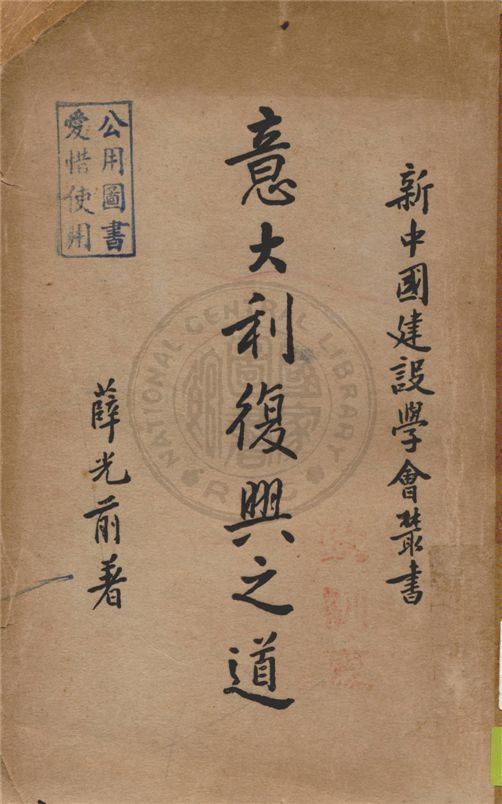 新中國建設學會叢書
意大利復興之道
薛光前著
公用圖書
愛惜使用
NATIONAL CENTRAL LIBRARY